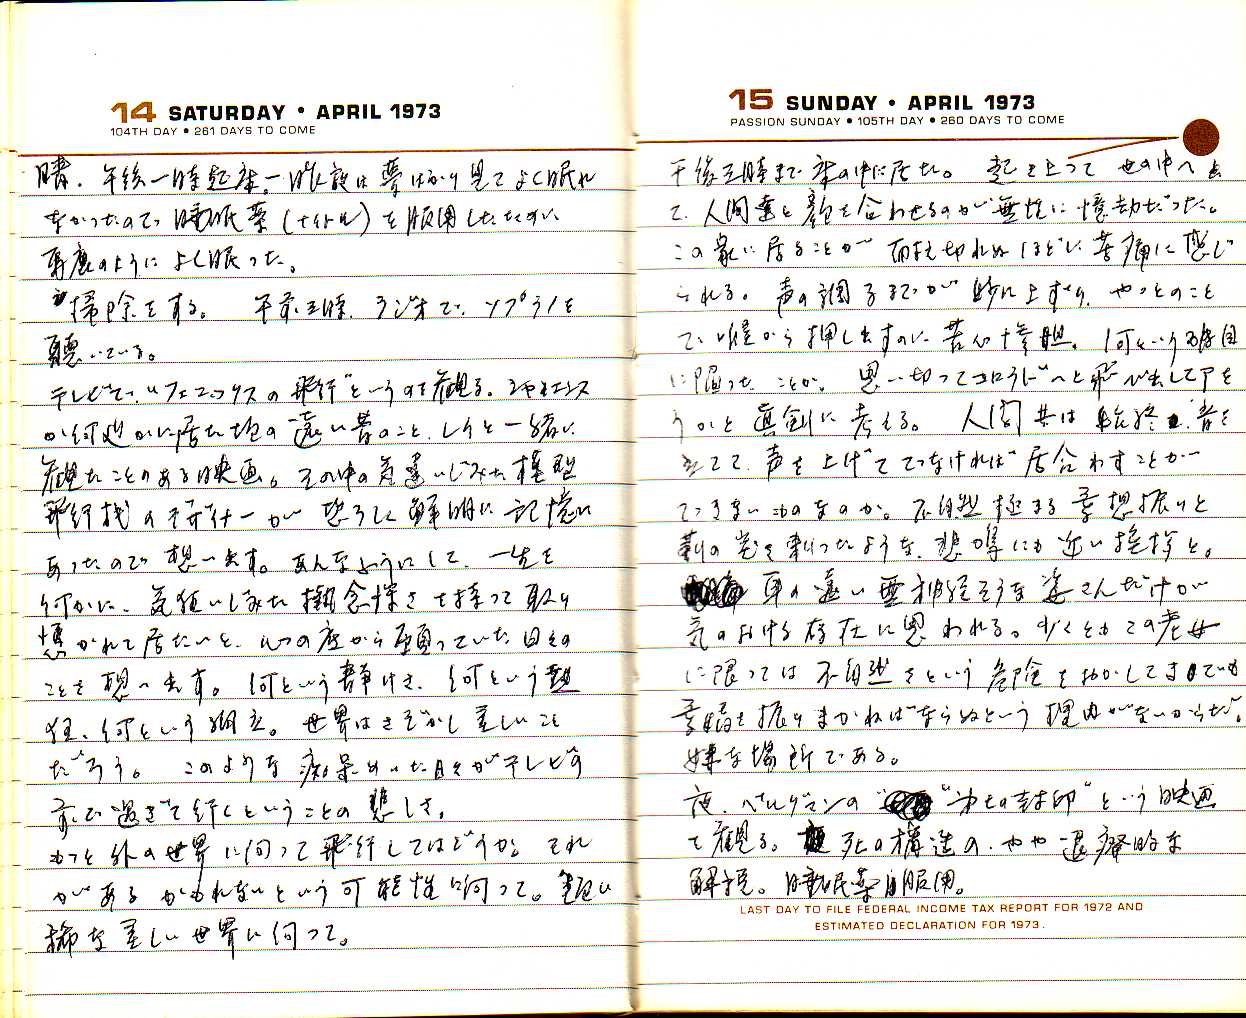 14 SATURDAY • APRIL 1973
104TH DAY • 261 DAYS TO COME
晴、午後一時起床。昨夜は夢ばかり見てよく眠れ
なかったので睡眠薬(ナイトール)を服用したせい
のようによく眠った。
掃除をする。午前三時、ラジオで、ソプラノを
聴いている。
テレビで、"フェニックスの飛行"というのを観る。
か何処かに居た頃の遠い昔のこと、と一緒に
観たことのある映画。その中の気違いじみた模型
飛行機のデザイナーが恐ろしく鮮明に記憶に
あったので想い出す。あんなふうにして、一生を
何かに、気狂いじみた執念深さを持って取り
憑かれて居たいと、心の底から願っていた日々の
ことを想い出す。何という静けさ、何という熱
狂、何という孤立。世界はさぞかし美しいこと
だろう。このような痴呆めいた日々がテレビの
前で過ぎて行くということの悲しさ。
もっと外の世界に向って飛行してはどうか。それ
があるかもれないという可能性に向って。
な美しい世界に向って。
15 SUNDAY • APRIL 1973
PASSION SUNDAY • 105TH DAY • 260 DAYS TO COME
午後三時まで床の中に居た。起き上って世の中へ出
て、人間達と顔を合わせるのが無性に憶劫だった。
この家に居ることが耐え切れぬほどに苦痛に感じ
られる。声の調子までが妙に上ずり、やっとのこと
で喉から押し出すのに苦心惨胆。何という羽目
に陥ったことか。思い切ってコロラドへと飛び出して了お
うかと真剣に考える。人間共は始終、音を
立てて、声を上げてでなければ居合わすことが
できないものなのか。不自然極まる愛想振りと
刺の先を刺ったような、悲鳴にも近い挨拶と。
耳の遠い無神経そうな婆さんだけが
気のおける存在に思われる。少くともこの老女
に限っては不自然さという危険をおかしてまでも
愛嬌を振りまかねばならぬという理由がないからだ。
嫌な場所である。
夜、ベルイマンの"第七の封印"という映画
を観る。死の構造の、やや退廃的な
解説。睡眠薬服用。
LAST DAY TO FILE FEDERAL INCOME TAX REPORT FOR 1972 AND
ESTIMATED DECLARATION FOR 1973.